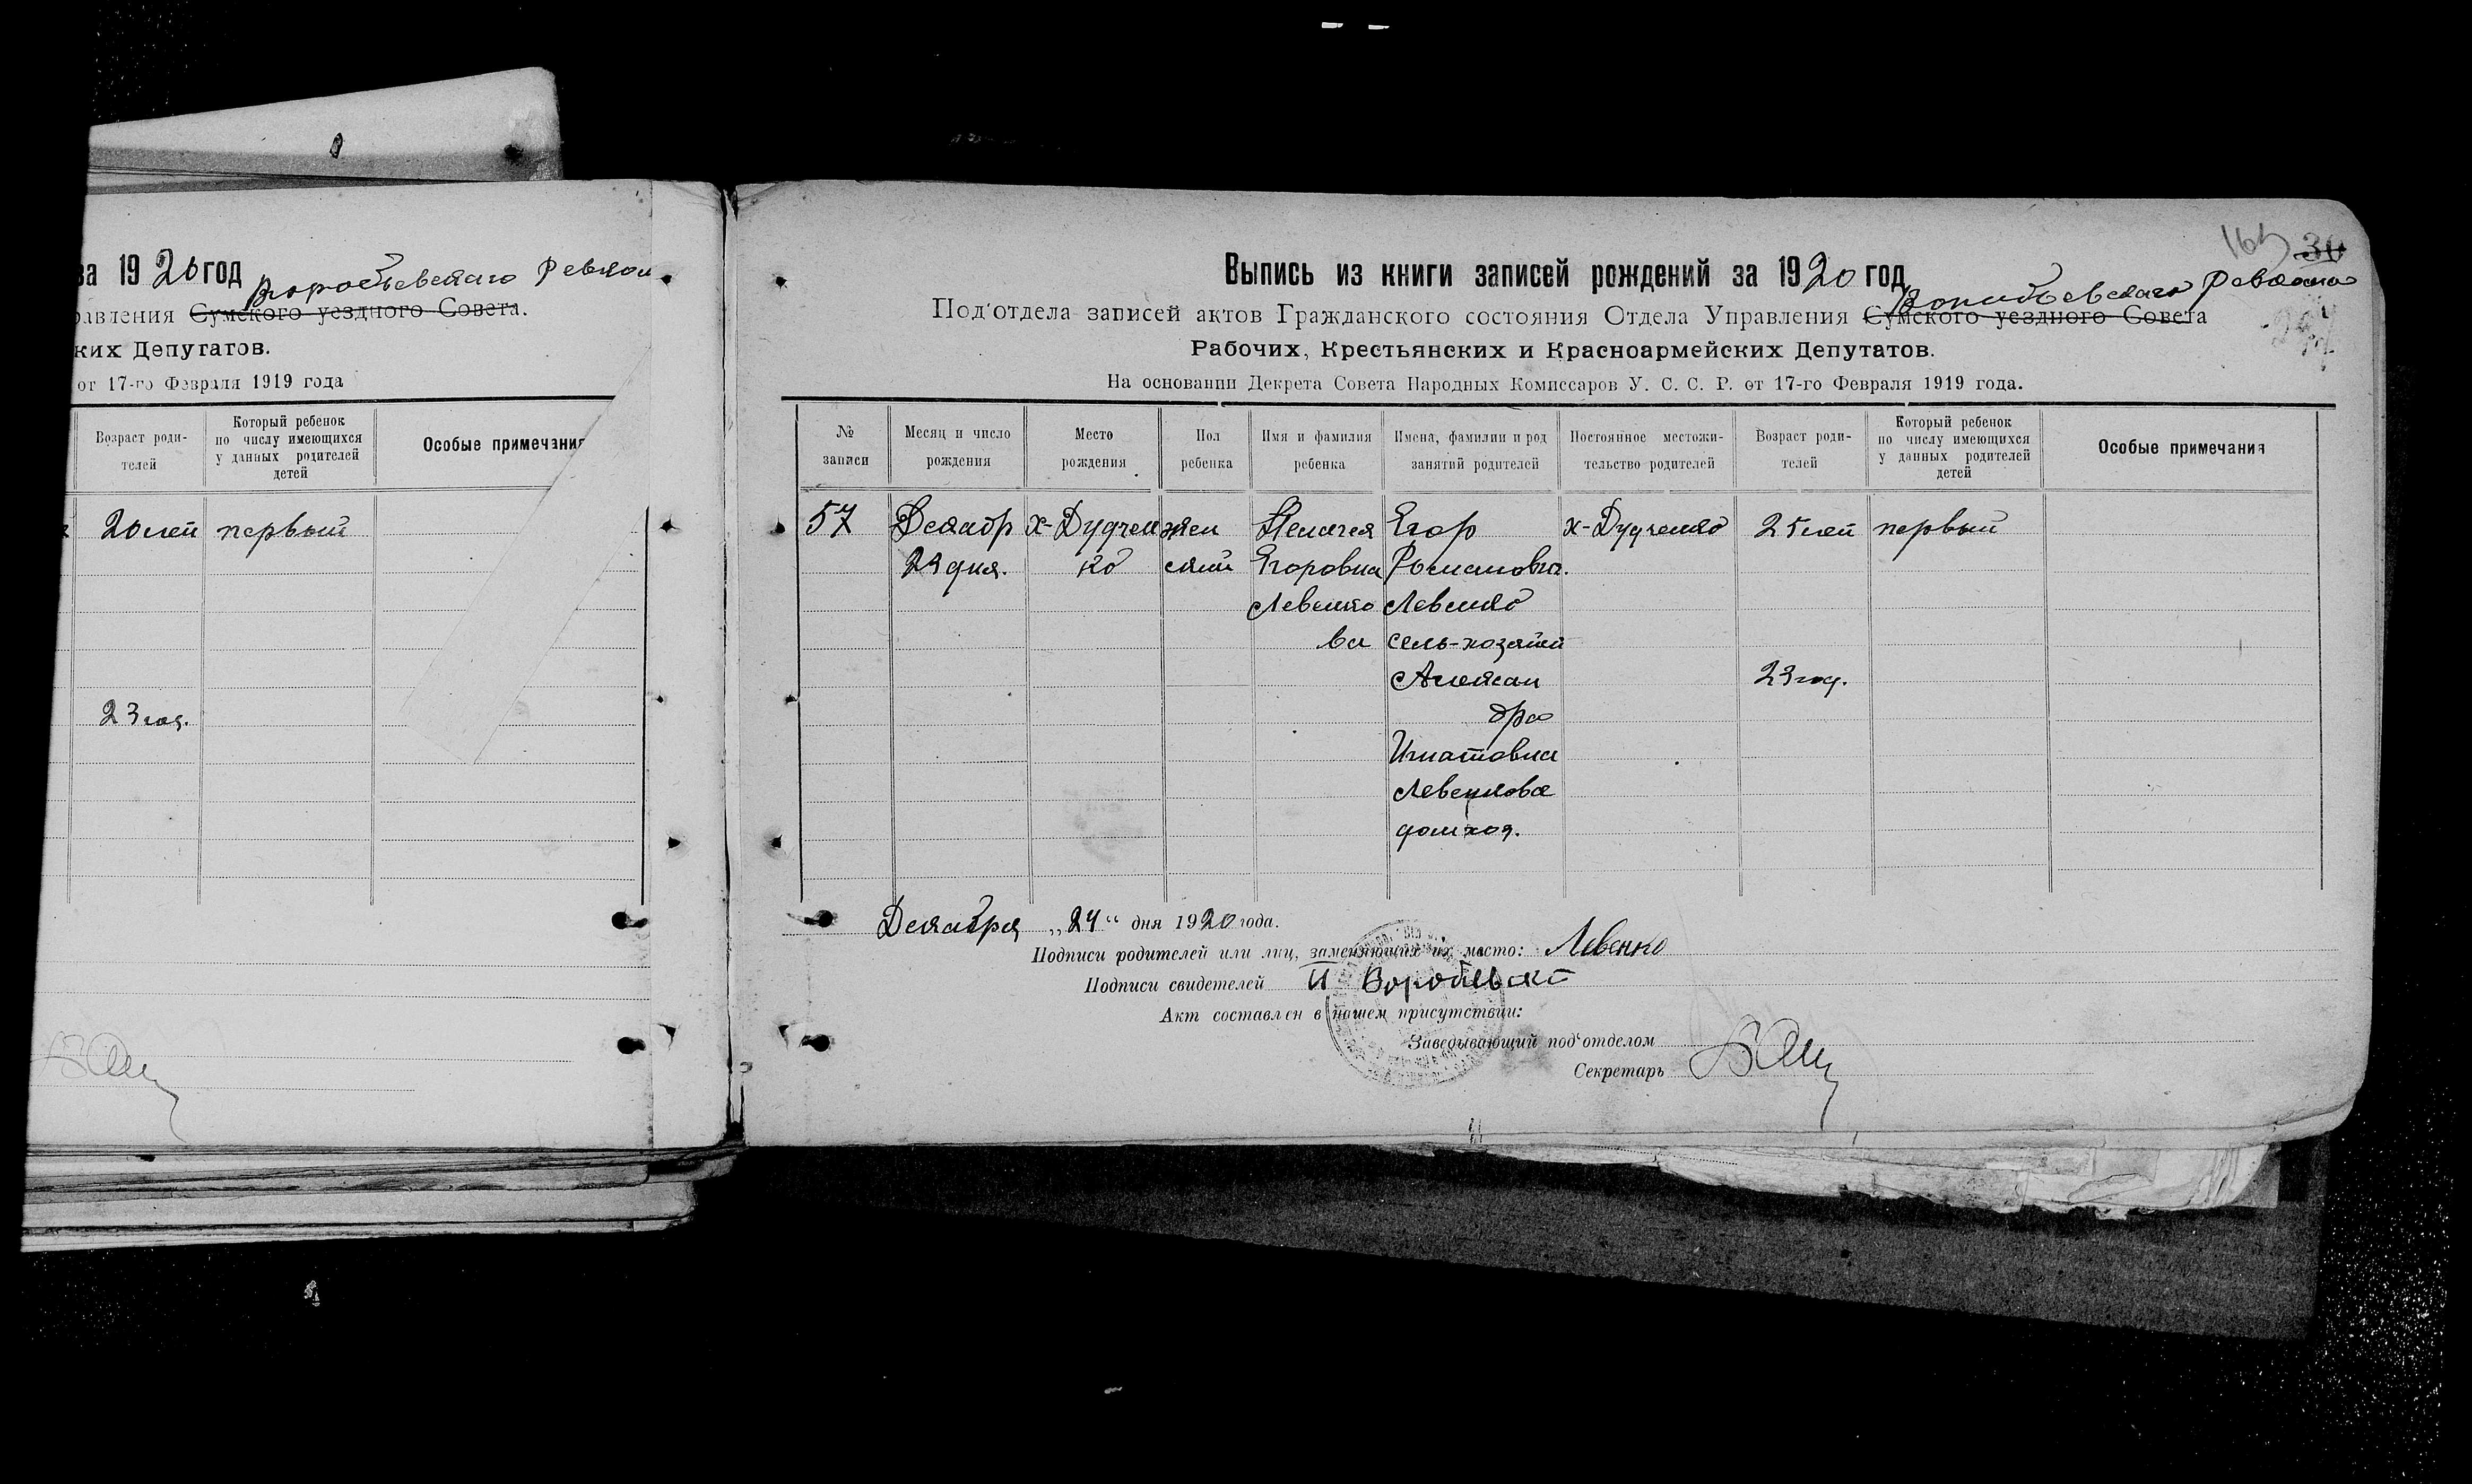 за 1920 год
Воробьевскаго Ревком
равления Сумского уездного Совета.
ких Депутатов.
от 17-го Февраля 1919 года
Возраст роди-
телей
Который ребенок
по числу имеющихся
у данных родителей
детей
Особые примечания
20 лет первый
23 год.
165 30
Выпись из книги записей рождений за 1920 год
Воробьевскаго Ревкома
Под'отдела записей актов Гражданского состояния Отдела Управления Сумского уездного Совета
Рабочих, Крестьянских и Красноармейских Депутатов.
На основании Декрета Совета Народных Комиссаров У. С. С. Р. от 17-го Февраля 1919 года.
№
записи
Месяц и число
рождения
Место
рождения
Пол
ребенка
Имя и фамилия
ребенка
Имена, фамилии и род
занятий родителей
Постоянное местожи-
тельство родителей
Возраст роди-
телей
Который ребенок
по числу имеющихся
у данных родителей
детей
Особые примечания
57 Декабр х-Дудчен жен Пелагея Егор х-Дудченко 25 лет первый
дня. ко ский Егоровна Романович.
Левенко Левенко
ва сель-хозяин
Алексан 23 год.
дра
Игнатовна
Левенкова
домхоз.
Декабря „24“ дня 1920 года.
Подписи родителей или лиц, заменяющих их место: Левенко
Подписи свидетелей И
Акт составлен в нашем присутствии:
Заведывающий под'отделом
Секретарь